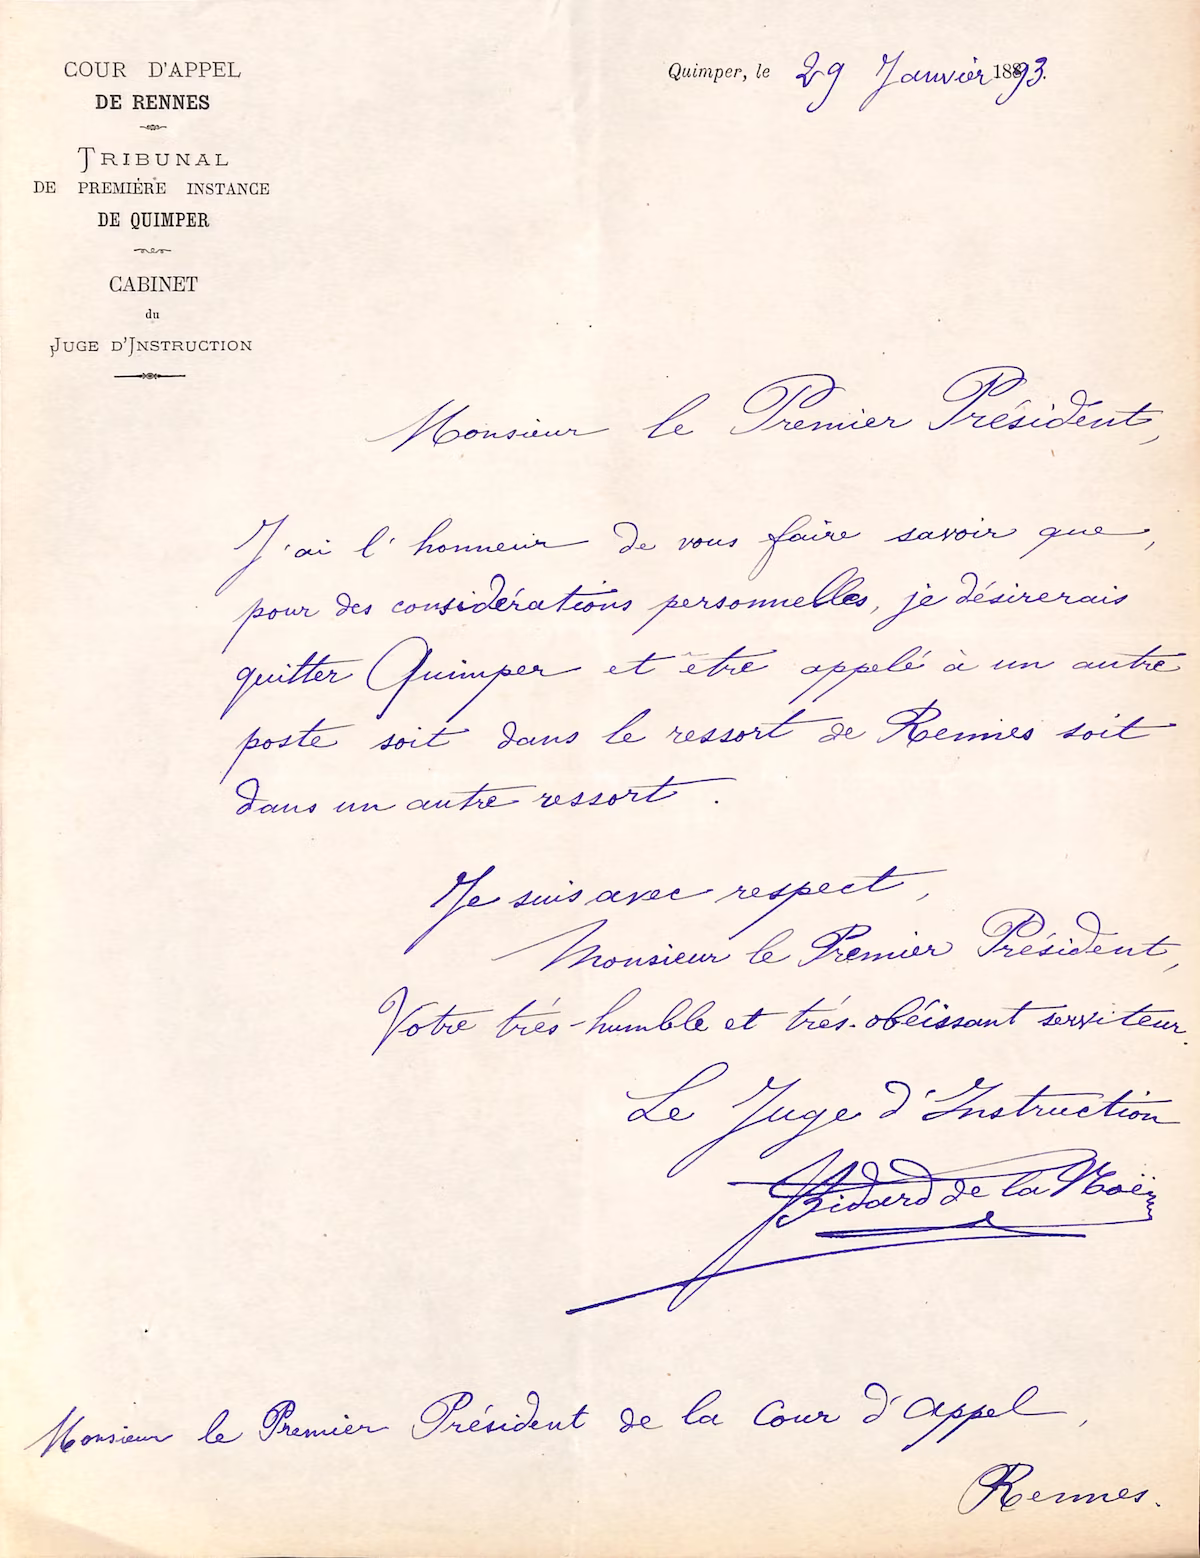 COUR D'APPEL
DE RENNES
TRIBUNAL
DE PREMIÈRE INSTANCE
DE QUIMPER
CABINET
du
JUGE D'INSTRUCTION
Quimper, le 29 Janvier 1893.
Monsieur le Premier Président,
J'ai l'honneur de vous faire savoir que,
pour des considérations personnelles, je désirerais
quitter Quimper et être appelé à un autre
poste soit dans le ressort de Rennes soit
dans un autre ressort.
Je suis avec respect,
Monsieur le Premier Président,
Votre très-humble et très-obéissant serviteur.
Le Juge d'Instruction
Bidard de la Noë
Monsieur le Premier Président de la Cour d'Appel,
Rennes.